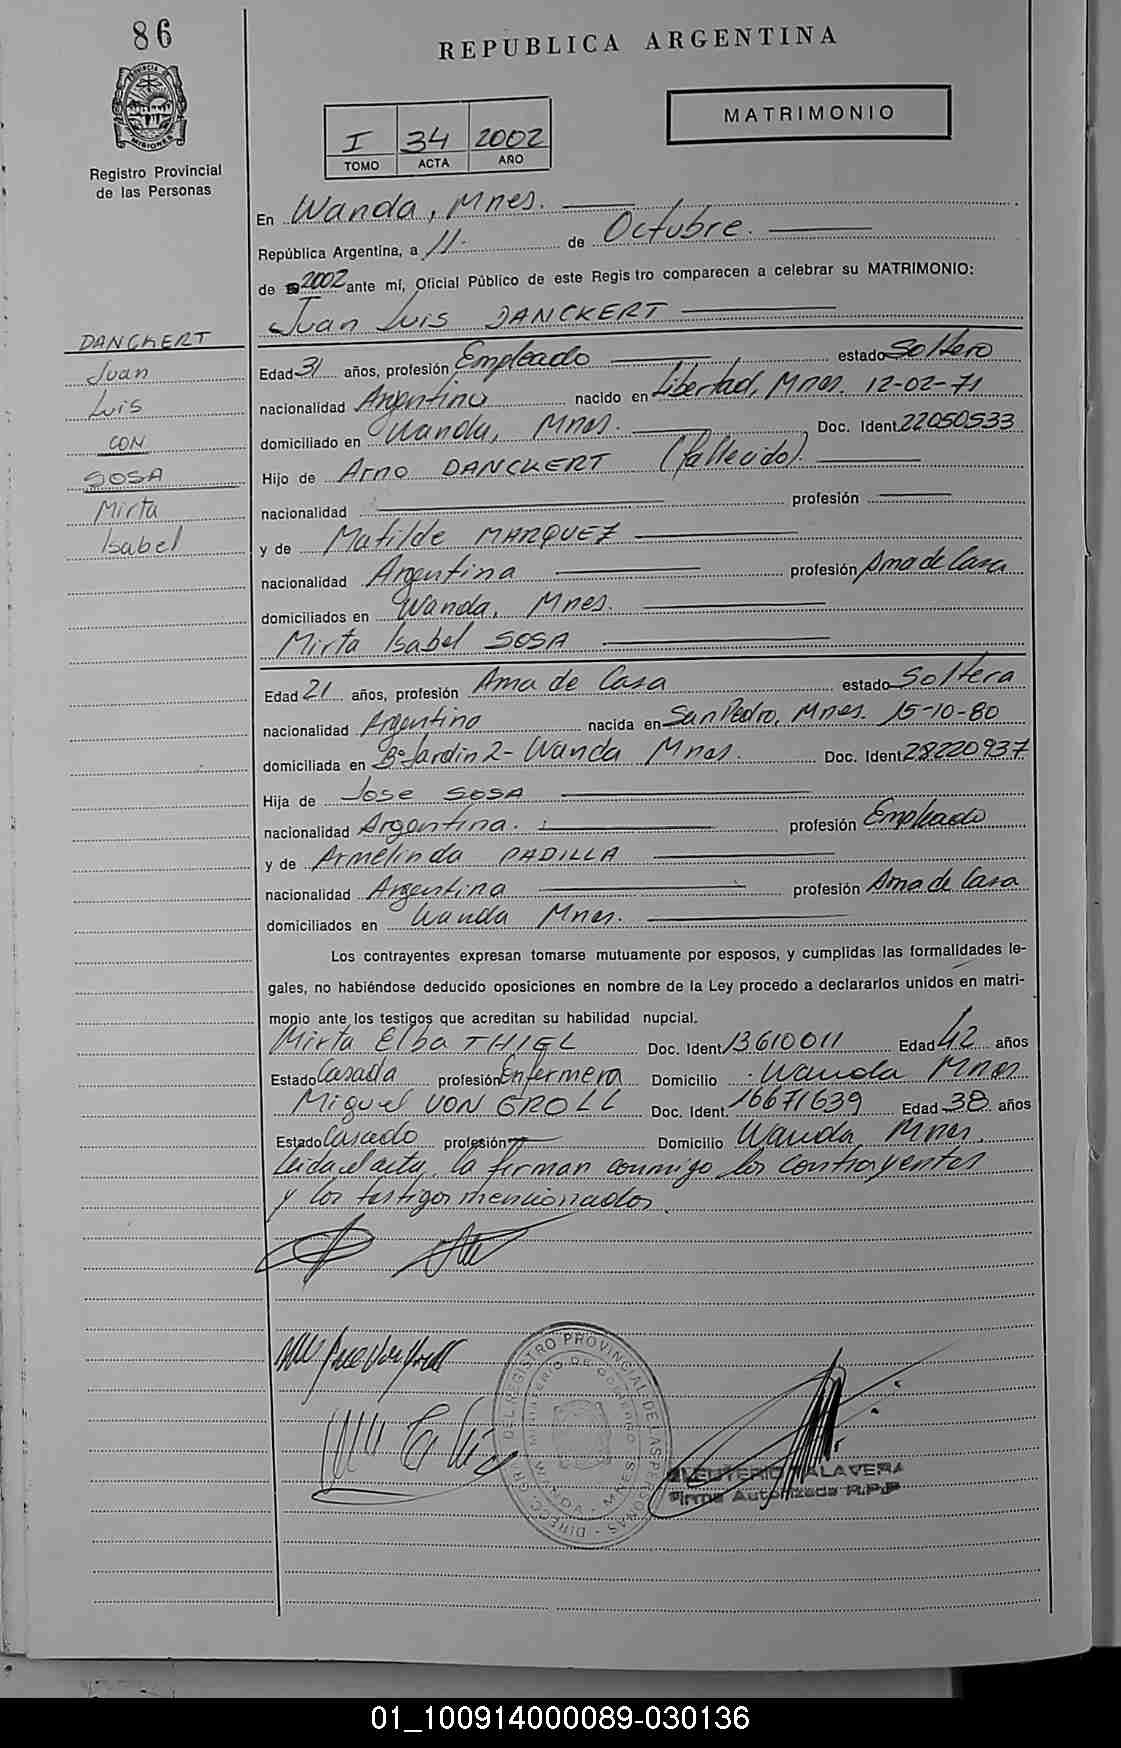 86
REPUBLICA ARGENTINA
PROVINCIA DE MISIONES
Registro Provincial
de las Personas
I 34 2002
TOMO ACTA AÑO
MATRIMONIO
En Wanda, Mnes.
República Argentina, a 11. de Octubre.
de 2002 ante mí, Oficial Público de este Regis tro comparecen a celebrar su MATRIMONIO:
Juan Luis DANCKERT
DANCKERT
Juan
Luis
CON
SOSA
Mirta
Isabel
Edad 31 años, profesión Empleado estado Soltero
nacionalidad Argentino nacido en Libertad, Mnes. 12-02-71
domiciliado en Wanda, Mnes. Doc. Ident 22050533
Hijo de Arno DANCKERT (fallecido).
nacionalidad profesión
y de Matilde MARQUEZ
nacionalidad Argentina profesión Ama de Casa
domiciliados en Wanda, Mnes.
Mirta Isabel SOSA
Edad 21 años, profesión Ama de Casa estado Soltera
nacionalidad Argentina nacida en San Pedro, Mnes. 15-10-80
domiciliada en B° Jardin 2- Wanda Mnes. Doc. Ident 28220937
Hija de Jose SOSA
nacionalidad Argentina. profesión Empleado
y de Armelinda PADILLA
nacionalidad Argentina profesión Ama de Casa
domiciliados en Wanda Mnes.
Los contrayentes expresan tomarse mutuamente por esposos, y cumplidas las formalidades le-
gales, no habiéndose deducido oposiciones en nombre de la Ley procedo a declararlos unidos en matri-
monio ante los testigos que acreditan su habilidad nupcial.
Mirta Elba THIEL Doc. Ident 13610011 Edad 42 años
Estado Casada profesión Enfermera Domicilio Wanda Mnes
Miguel VON GROLL Doc. Ident. 16671639 Edad 38 años
Estado Casado profesión Domicilio Wanda, Mnes.
Leida el acta, la firman conmigo los contrayentes
y los testigos mencionados.
DIRECC. GRAL. DEL REGISTRO PROVINCIAL DE LAS PERSONAS
MINISTERIO DE GOBIERNO
WANDA - MNES
ELEUTERIO TALAVERA
Firma Autorizada R.P.P
01_100914000089-030136